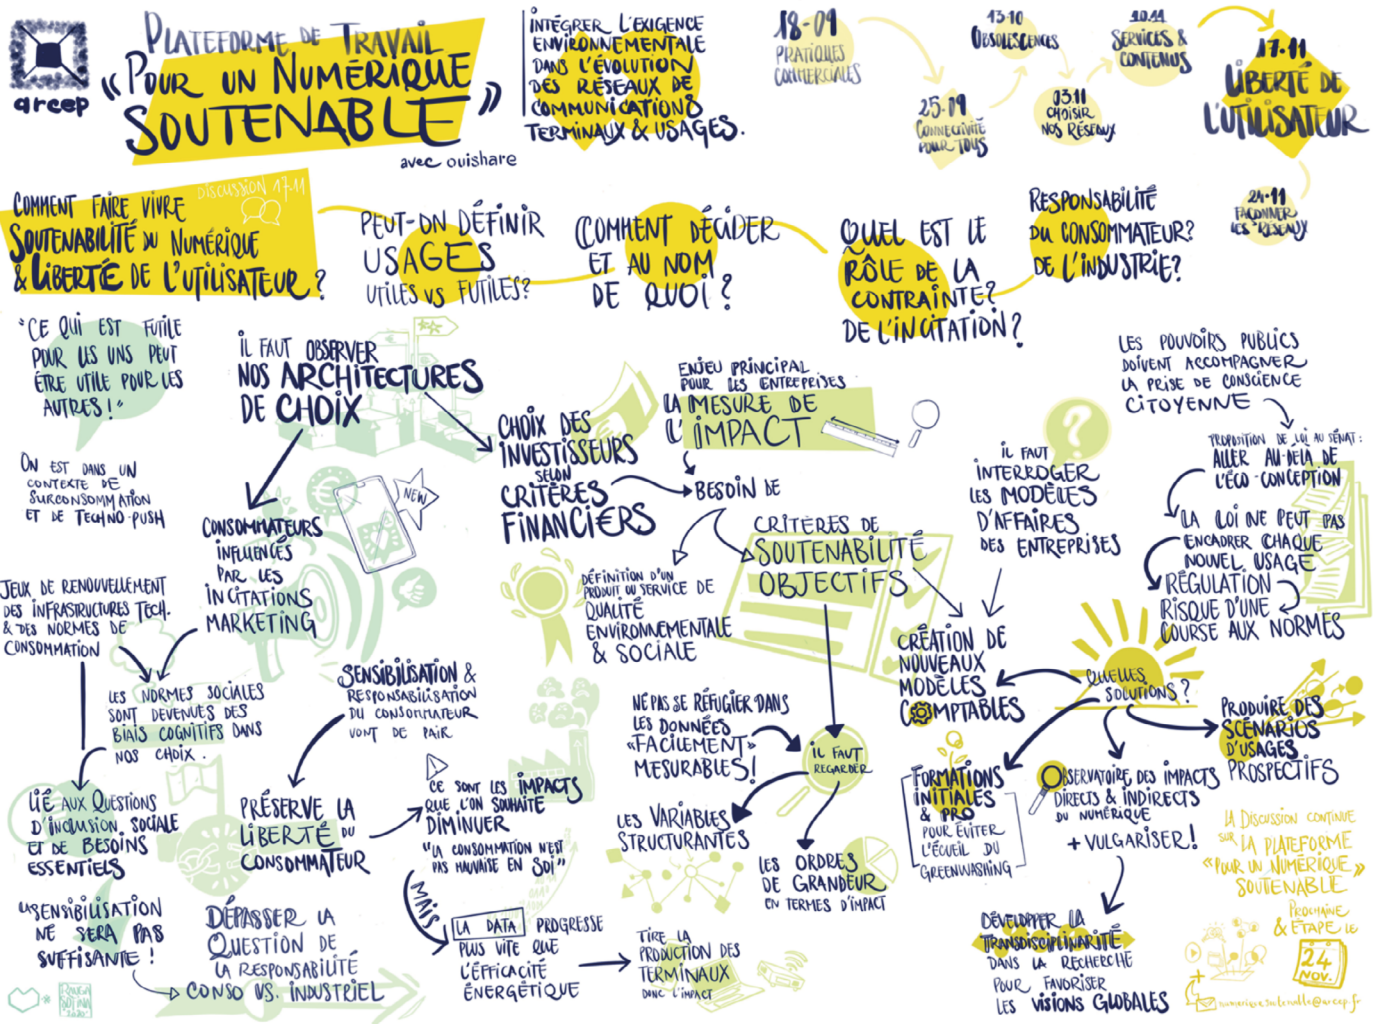 arcep
PLATEFORME DE TRAVAIL
« POUR UN NUMÉRIQUE
SOUTENABLE »
avec ouishare
INTÉGRER L'EXIGENCE
ENVIRONNEMENTALE
DANS L'ÉVOLUTION
DES RÉSEAUX DE
COMMUNICATIONS
TERMINAUX & USAGES.
18-09
PRATIQUES
COMMERCIALES
25-09
CONNECTIVITÉ
POUR TOUS
13-10
OBSOLESCENCES
03.11
CHOISIR
NOS RÉSEAUX
10.11
SERVICES &
CONTENUS
17.11
LIBERTÉ DE
L'UTILISATEUR
24-11
FAÇONNER
LES RÉSEAUX
DISCUSSION 17.11
COMMENT FAIRE VIVRE
SOUTENABILITÉ DU NUMÉRIQUE
& LIBERTÉ DE L'UTILISATEUR ?
PEUT-ON DÉFINIR
USAGES
UTILES VS FUTILES?
COMMENT DÉCIDER
ET AU NOM
DE QUOI ?
QUEL EST LE
RÔLE DE LA
CONTRAINTE?
DE L'INCITATION ?
RESPONSABILITÉ
DU CONSOMMATEUR?
DE L'INDUSTRIE?
"CE QUI EST FUTILE
POUR LES UNS PEUT
ÊTRE UTILE POUR LES
AUTRES !"
ON EST DANS UN
CONTEXTE DE
SURCONSOMMATION
ET DE TECHNO-PUSH
JEUX DE RENOUVELLEMENT
DES INFRASTRUCTURES TECH.
& DES NORMES DE
CONSOMMATION
IL FAUT OBSERVER
NOS ARCHITECTURES
DE CHOIX
CONSOMMATEURS
INFLUENCÉS
PAR LES
INCITATIONS
MARKETING
NEW
LES NORMES SOCIALES
SONT DEVENUES DES
BIAIS COGNITIFS DANS
NOS CHOIX.
LIÉ AUX QUESTIONS
D'INCLUSION SOCIALE
ET DE BESOINS
ESSENTIELS
"SENSIBILISATION
NE SERA PAS
SUFFISANTE !
DÉPASSER LA
QUESTION DE
LA RESPONSABILITÉ
CONSO VS. INDUSTRIEL
SENSIBILISATION &
RESPONSABILISATION
DU CONSOMMATEUR
VONT DE PAIR
PRÉSERVE LA
LIBERTÉ DU
CONSOMMATEUR
CE SONT LES IMPACTS
QUE L'ON SOUHAITE
DIMINUER
"LA CONSOMMATION N'EST
PAS MAUVAISE EN SOI"
MAIS
LA DATA PROGRESSE
PLUS VITE QUE
L'EFFICACITÉ
ÉNERGÉTIQUE
TIRE LA
PRODUCTION DES
TERMINAUX
DONC L'IMPACT
CHOIX DES
INVESTISSEURS
SELON
CRITÈRES
FINANCI€RS
ENJEU PRINCIPAL
POUR LES ENTREPRISES
LA MESURE DE
L'IMPACT
BESOIN DE
DÉFINITION D'UN
PRODUIT OU SERVICE DE
QUALITÉ
ENVIRONNEMENTALE
& SOCIALE
CRITÈRES DE
SOUTENABILITÉ
OBJECTIFS
NE PAS SE RÉFUGIER DANS
LES DONNÉES
«FACILEMENT»
MESURABLES !
IL FAUT
REGARDER
LES VARIABLES
STRUCTURANTES
LES ORDRES
DE GRANDEUR
EN TERMES D'IMPACT
IL FAUT
INTERROGER
LES MODÈLES
D'AFFAIRES
DES ENTREPRISES
?
CRÉATION DE
NOUVEAUX
MODÈLES
COMPTABLES
LES POUVOIRS PUBLICS
DOIVENT ACCOMPAGNER
LA PRISE DE CONSCIENCE
CITOYENNE
PROPOSITION DE LOI AU SÉNAT :
ALLER AU-DELÀ DE
L'ÉCO-CONCEPTION
LA LOI NE PEUT PAS
ENCADRER CHAQUE
NOUVEL USAGE
RÉGULATION
RISQUE D'UNE
COURSE AUX NORMES
QUELLES
SOLUTIONS ?
FORMATIONS
INITIALES
& PRO
POUR ÉVITER
L'ÉCUEIL DU
GREENWASHING
OBSERVATOIRE DES IMPACTS
DIRECTS & INDIRECTS
DU NUMÉRIQUE
+ VULGARISER !
PRODUIRE DES
SCÉNARIOS
D'USAGES
PROSPECTIFS
DÉVELOPPER LA
TRANSDISCIPLINARITÉ
DANS LA RECHERCHE
POUR FAVORISER
LES VISIONS GLOBALES
LA DISCUSSION CONTINUE
SUR LA PLATEFORME
«POUR UN NUMÉRIQUE
SOUTENABLE»
PROCHAINE
& ÉTAPE LE
24
NOV.
numerique.soutenable@arcep.fr